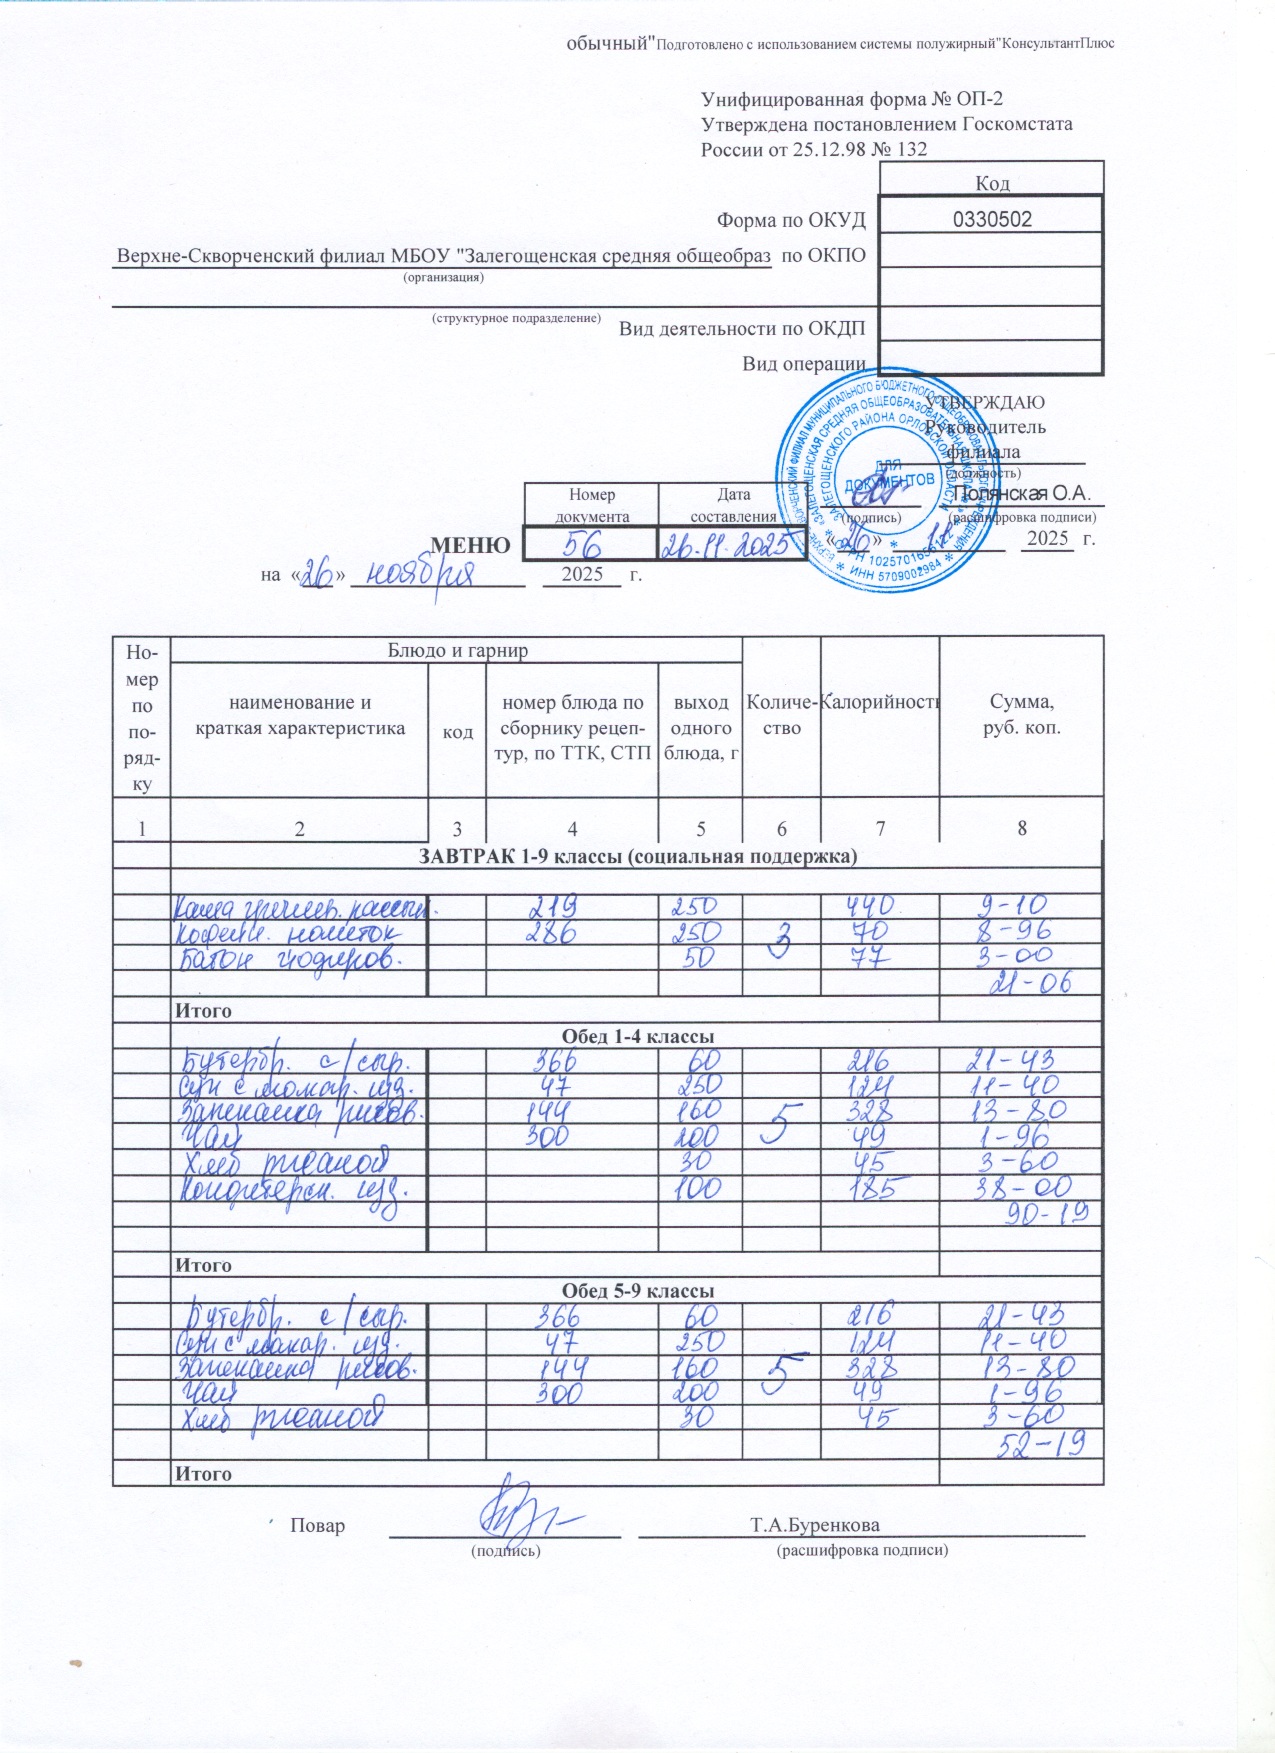 обычный"Подготовлено с использованием системы полужирный"КонсультантПлюс
Унифицированная форма № ОП-2
Утверждена постановлением Госкомстата
России от 25.12.98 № 132
Код
Форма по ОКУД 0330502
Верхне-Скворченский филиал МБОУ "Залегощенская средняя общеобраз по ОКПО
(организация)
(структурное подразделение)
Вид деятельности по ОКДП
Вид операции
УТВЕРЖДАЮ
Руководитель
филиала
(должность)
ДЛЯ
ДОКУМЕНТОВ
Полянская О.А.
(подпись) (расшифровка подписи)
Номер документа Дата составления
МЕНЮ 56 26.11.2025 «26» 11 2025 г.
на «26» ноября 2025 г.
ОГРН 1025701656122 * ИНН 5709002984 *
Но-мер по по-ряд-ку Блюдо и гарнир Количе-ство Калорийность Сумма, руб. коп.
наименование и краткая характеристика код номер блюда по сборнику рецеп-тур, по ТТК, СТП выход одного блюда, г
1 2 3 4 5 6 7 8
ЗАВТРАК 1-9 классы (социальная поддержка)
Каша гречнев. рассып. 219 250 440 9-10
Кофейн. напиток 286 250 3 70 8-96
Батон йодиров. 50 77 3-00
21-06
Итого
Обед 1-4 классы
Бутербр. с/сыр. 366 60 216 21-43
Суп с макар. изд. 47 250 124 11-40
Запеканка рисов. 144 160 5 328 13-80
Чай 300 200 49 1-96
Хлеб ржаной 30 45 3-60
Кондитерск. изд. 100 185 38-00
90-19
Итого
Обед 5-9 классы
Бутербр. с/сыр. 366 60 216 21-43
Суп с макар. изд. 47 250 124 11-40
Запеканка рисов. 144 160 5 328 13-80
Чай 300 200 49 1-96
Хлеб ржаной 30 45 3-60
52-19
Итого
Повар Т.А.Буренкова
(подпись) (расшифровка подписи)